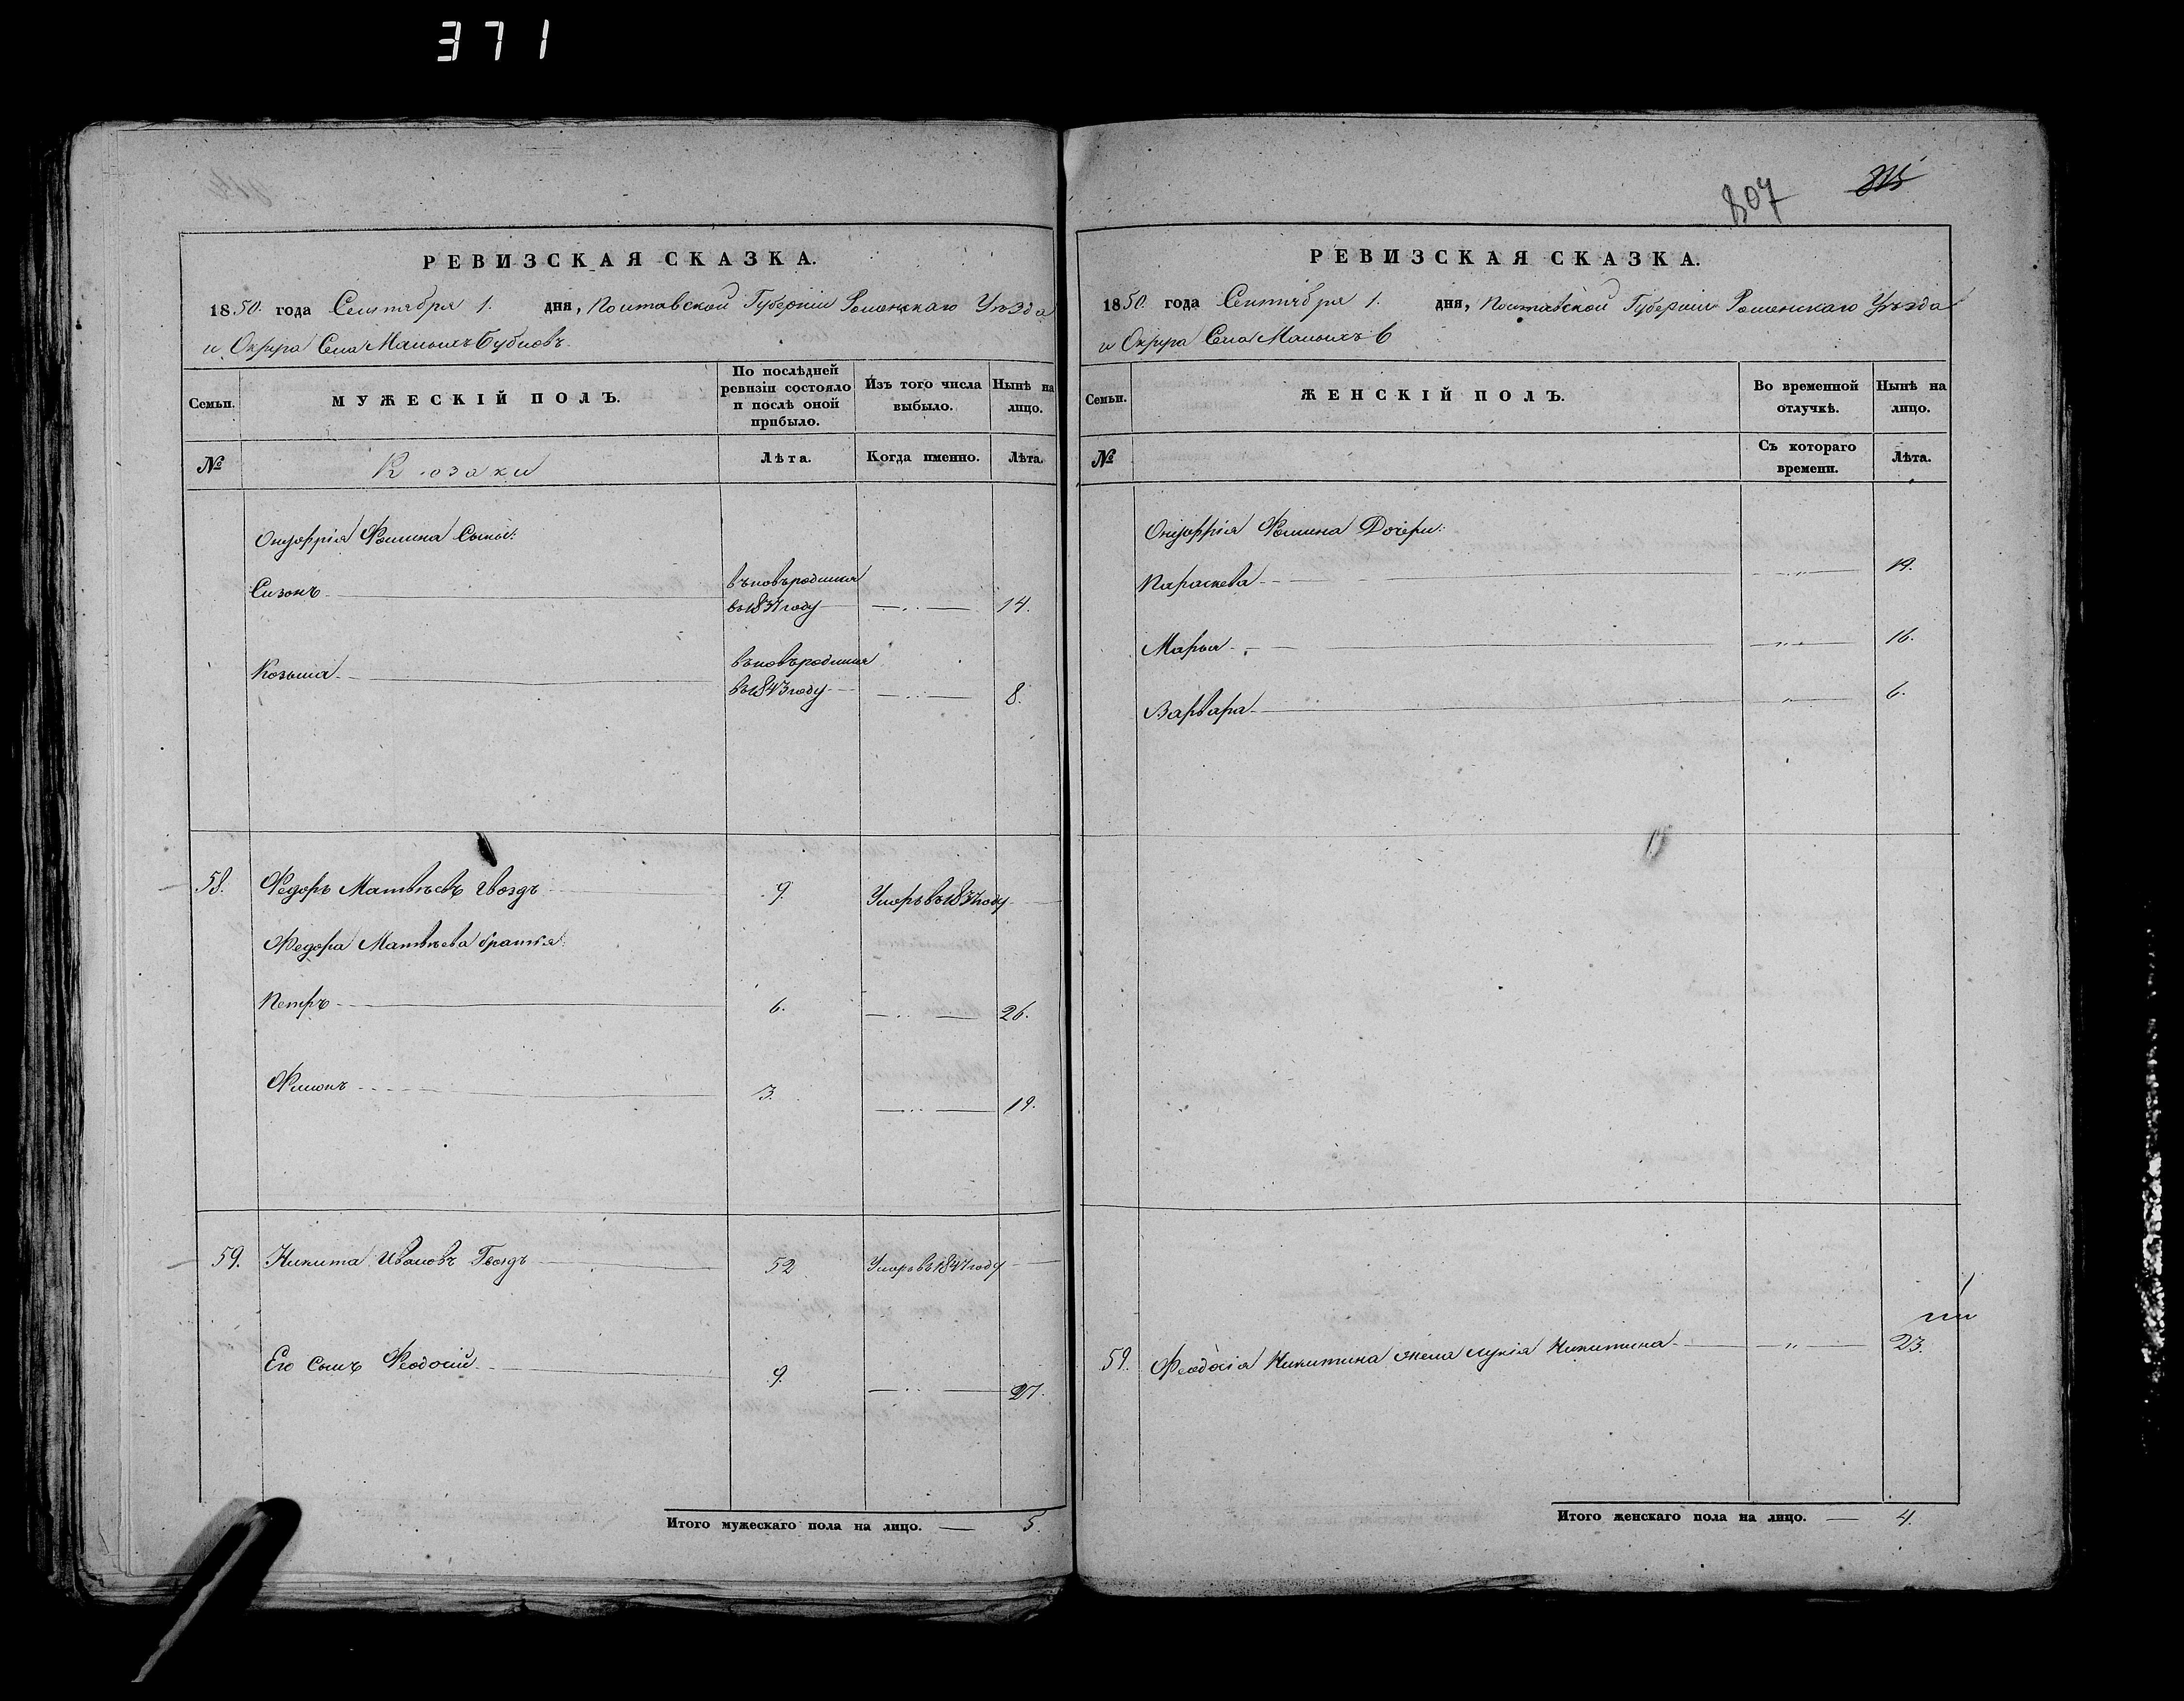 371
РЕВИЗСКАЯ СКАЗКА.
1850. года Сентября 1. дня, Полтавской Губерніи Роменскаго Уѣзда
и Округа Села Малыхъ Бубновъ
Семьи.
МУЖЕСКІЙ ПОЛЪ.
По послѣдней ревизіи состояло и послѣ оной прибыло.
Изъ того числа выбыло.
Нынѣ на лицо.
№
Козаки
Лѣта.
Когда именно.
Лѣта.
Онуфрія Фомина Сыны:
Сизонъ
вновъродился
въ 1837 году
14.
Козьма
вновъродился
въ 1843 году
8.
58. Федоръ Матвѣевъ Гвоздь 9. Умеръ въ 1837 году
Федора Матвѣева братья:
Петръ 6. 26.
Филипъ 3. 19.
59. Никита Ивановъ Гвоздь 52 Умеръ въ 1847 году
Его Сынъ Феодосій 9. 27.
Итого мужескаго пола на лицо. 5.
807
РЕВИЗСКАЯ СКАЗКА.
1850. года Сентября 1. дня, Полтавской Губерніи Роменскаго Уѣзда
и Округа Села Малыхъ Б
Семьи.
ЖЕНСКІЙ ПОЛЪ.
Во временной отлучкѣ.
Нынѣ на лицо.
№
Съ котораго времени.
Лѣта.
Онуфрія Фомина Дочери:
Параскева 19.
Марья 16.
Варвара 6.
59. Феодосія Никитина жена Лукія Никитина 23.
Итого женскаго пола на лицо. 4.